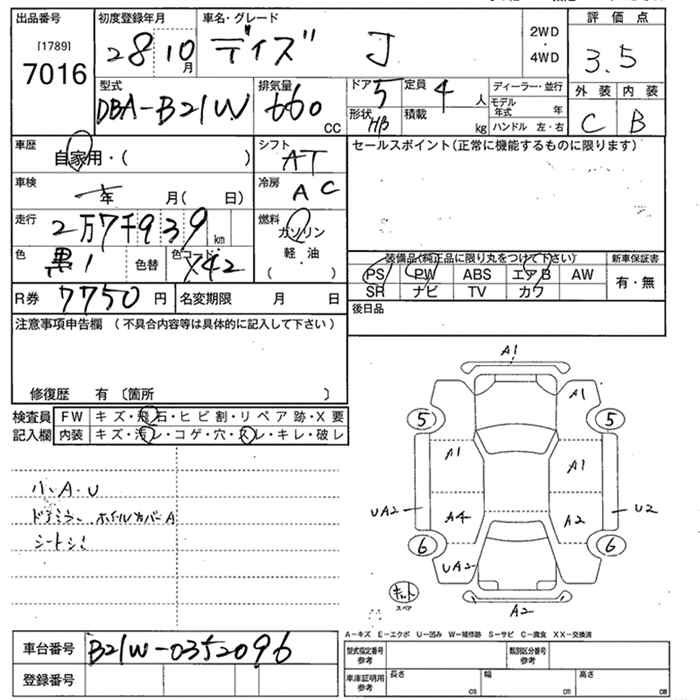 出品番号 初度登録年月 車名・グレード 評価点
[1789] 28 10月 デイズ J 2WD・4WD 3.5
7016
型式 排気量 ドア 5 定員 4人 ディーラー・並行 外装 内装
DBA-B21W 660cc 形状 H/B 積載 kg モデル年式 年 C B
ハンドル 左・右
車歴 自家用・( ) シフト AT セールスポイント(正常に機能するものに限ります)
車検 年 月( 日) 冷房 AC
走行 2万7千939km 燃料 ガソリン
軽・油
( ・ )
色 黒1 色替 色コード X42 装備品(純正品に限り丸をつけて下さい) 新車保証書
PS PW ABS エアB AW 有・無
SR ナビ TV カワ
R券 7750円 名変期限 月 日 後日品
注意事項申告欄(不具合内容等は具体的に記入して下さい)
修復歴 有〔箇所 〕
検査員 FW キズ・飛石・ヒビ割・リペア跡・X要
記入欄 内装 キズ・汚レ・コゲ・穴・スレ・キレ・破レ
小、A・U
ドアミラー、ホイルカバーA
シートシミ
A1
A1
5 5
A1 A1
UA2 U2
A4 A2
6 6
UA2
キット
スペア
A2
A−キズ E−エクボ U−凹み W−補修跡 S−サビ C−腐食 XX−交換済
車台番号 B21W-0352096 型式指定番号 参考 類別区分番号 参考
登録番号 車庫証明用 参考 長さ cm 幅 cm 高さ cm